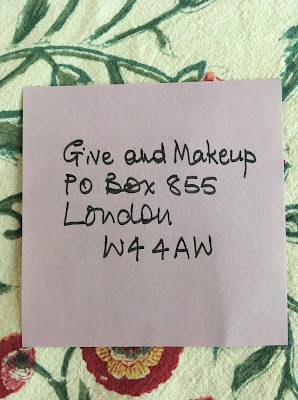 Give and Makeup
PO Box 855
London
W4 4AW